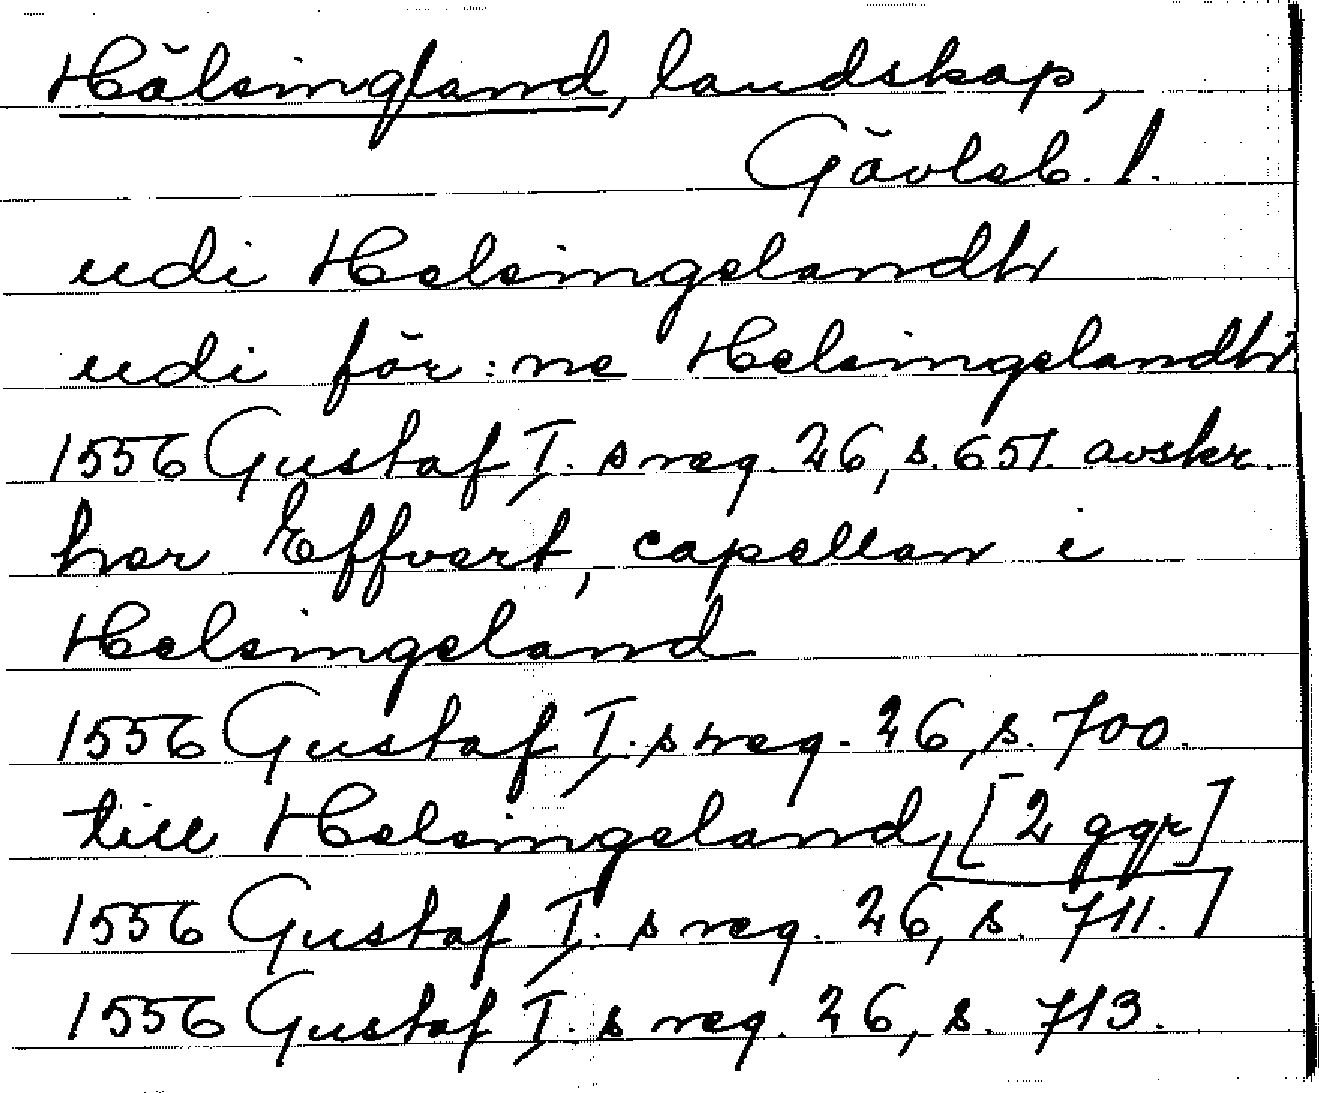 Hälsingland, landskap,
Gävleb. l.
udi Helsingelandh
udi för:ne Helsingelandh
1556 Gustaf I. s reg. 26, s. 651. avskr.
her Effvert, capellan i
Helsingeland
1556 Gustaf I. s reg. 26, s. 700.
till Helsingeland, [2 ggr]
1556 Gustaf I. s reg. 26, s. 711.
1556 Gustaf I. s reg. 26, s. 713.